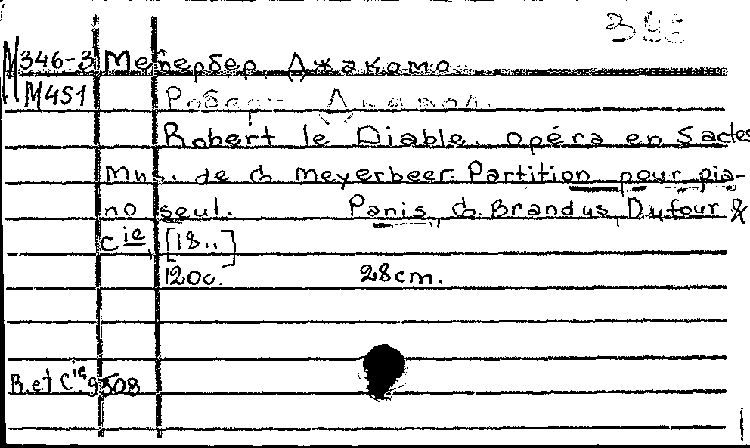 M346-3 Мейербер Джакомо.
M451 Роберт Дьявол.
Robert le Diable. opéra en 5 actes
Mus. de G. Meyerbeer. Partition pour pia-
no seul. Paris, G. Brandus, Dufour &
Cie [18..]
120c. 28cm.
B. et Cie 9508